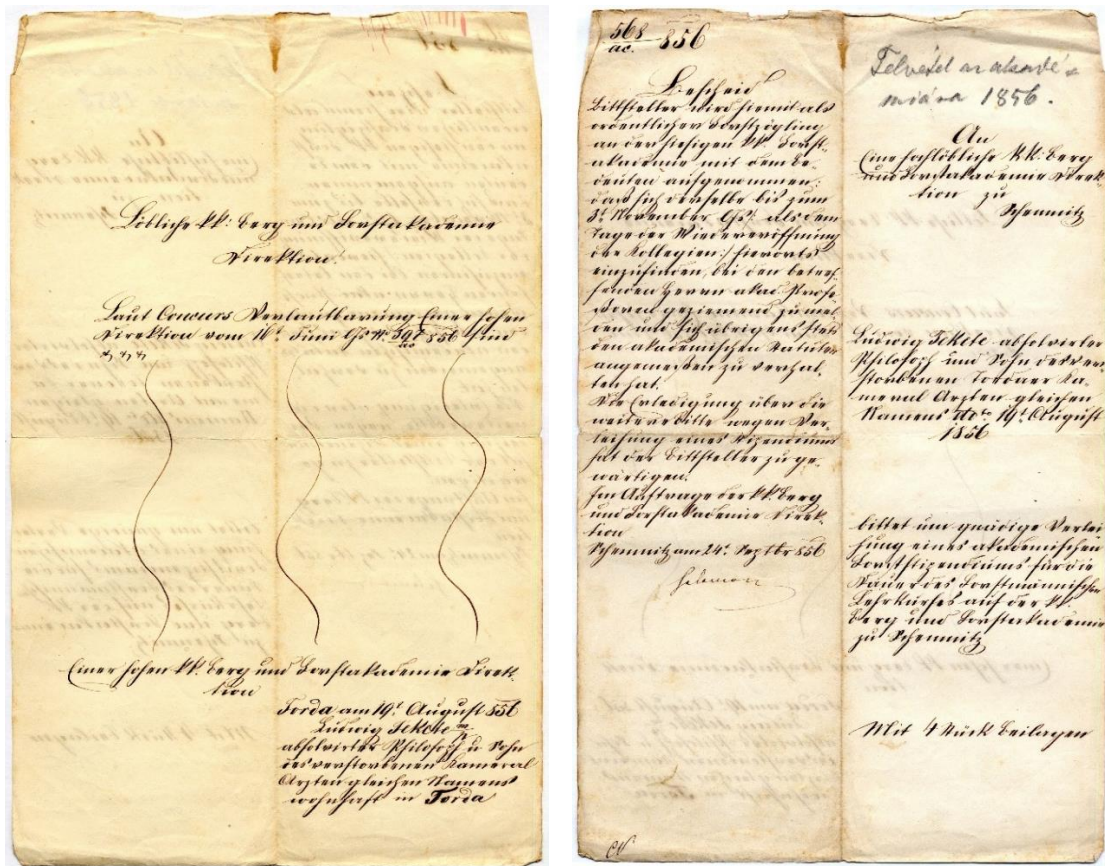 Löbliche k.k: Berg und Forstakademie
Direktion!
Laut Concurs Verlautbarung Einer hohen
Direktion vom 16t Juni l/Js N. 398/ac 856 sind
Einer hohen k.k. Berg und Forstakademie Direk-
tion
Torda am 19t August 856
Ludwig Fekete
absolvirter Philosoph u Sohn
des verstorbenen Kameral
Arzten gleichen Namens
wohnhaft in Torda
568/ac. 856
Bescheid
Bittsteller wird hiemit als
ordentlicher Forstzögling
an der hiesigen k.k. Forst-
akademie mit dem Be-
deuten aufgenommen:
daß sich derselbe bis zum
3t November l/Js: als dem
Tage der Wiedereröffnung
der Kollegien: hierorts
einzufinden, bei den betref-
fenden Herrn akad: Profes-
soren geziemend zu mel-
den und sich übrigens stets
den akademischen Statuten
angemeßen zu verhal-
ten hat.
Die Erledigung über die
weitere Bitte wegen Ver-
leihung eines Stipendiums
hat der Bittsteller zu ge-
wärtigen.
Im Auftrage der k.k. Berg
und Forstakademie Direk-
tion
Schemnitz am 24t Septbr 856
Felvétel az akadé-
miára 1856.
An
Eine hochlöbliche k.k: Berg
und Forstakademie Direk-
tion zu
Schemnitz
Ludwig Fekete absolvirter
Philosoph und Sohn des ver-
storbenen Tordaer Ka-
meral Arzten gleichen
Namens ddto 19t August
1856
bittet um gnädige Verlei-
hung eines akademischen
Forststipendiums für die
Dauer des Forstmännischen
Lehrkurses auf der k.k.
Berg und Forstakademie
zu Schemnitz
Mit 4 Stück Beilagen